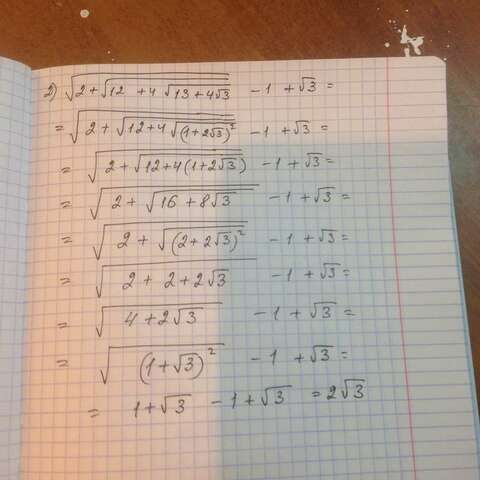 2) √(2 + √(12 + 4√(13 + 4√3))) - 1 + √3 =
= √(2 + √(12 + 4√((1 + 2√3)²))) - 1 + √3 =
= √(2 + √(12 + 4(1 + 2√3))) - 1 + √3 =
= √(2 + √(16 + 8√3)) - 1 + √3 =
= √(2 + √((2 + 2√3)²)) - 1 + √3 =
= √(2 + 2 + 2√3) - 1 + √3 =
= √(4 + 2√3) - 1 + √3 =
= √((1 + √3)²) - 1 + √3 =
= 1 + √3 - 1 + √3 = 2√3